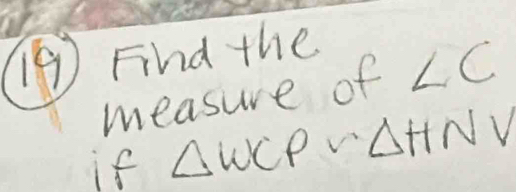 19) Find the
measure of ∠C
if △WCP ~ △HNV